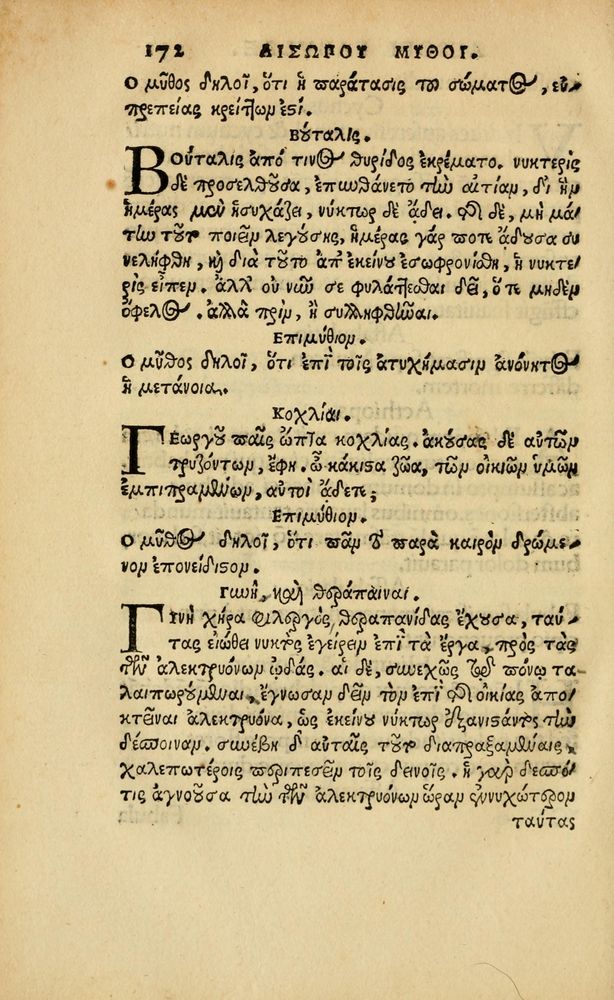 172 ΑΙΣΩΠΟΥ ΜΥΘΟΙ.
Ο μῦθος δηλοῖ, ὅτι ἡ παράτασις τοῦ σώματος, εὐ-
πρεπείας κρείττων ἐστί.
Βούταλις.
Βούταλις ἀπό τινος θυρίδος ἐκρέματο. νυκτερὶς
δὲ προσελθοῦσα, ἐπυνθάνετο τὴν αἰτίαν, δι ἣν
ἡμέρας μὲν ἡσυχάζει, νύκτωρ δὲ ᾄδει. τῆς δὲ, μὴ μά-
την τοῦτο ποιεῖν λεγούσης, ἡμέρας γάρ ποτε ᾄδουσα συ
νελήφθη, καὶ διὰ τοῦτο ἀπ' ἐκείνου ἐσωφρονίσθη, ἡ νυκτε-
ρὶς εἶπεν. ἀλλ' οὐ νῦν σε φυλάττεσθαι δεῖ, ὅτε μηδὲν
ὄφελος. ἀλλὰ πρὶν, ἢ συλληφθῆναι.
Επιμύθιον.
Ο μῦθος δηλοῖ, ὅτι ἐπὶ τοῖς ἀτυχήμασιν ἀνόνητος
ἡ μετάνοια.
Κοχλίαι.
Γεωργοῦ παῖς ὤπτα κοχλίας. ἀκούσας δὲ αὐτῶν
τρυζόντων, ἔφη. ὦ κάκιστα ζῶα, τῶν οἰκιῶν ὑμῶν
ἐμπιπραμένων, αὐτοὶ ᾄδετε;
Επιμύθιον.
Ο μῦθος δηλοῖ, ὅτι πᾶν τὸ παρὰ καιρὸν δρώμε-
νον ἐπονείδιστον.
Γυνὴ, καὶ θεράπαιναι.
Γυνὴ χήρα φιλεργὸς, θεραπαινίδας ἔχουσα, ταύ-
τας εἰώθει νυκτὸς ἐγείρειν ἐπὶ τὰ ἔργα, πρὸς τὰς
τῶν ἀλεκτρυόνων ᾠδάς. αἱ δὲ, συνεχῶς τῷ πόνῳ τα-
λαιπωρούμεναι, ἔγνωσαν δεῖν τὸν ἐπὶ τῆς οἰκίας ἀπο-
κτεῖναι ἀλεκτρυόνα, ὡς ἐκείνου νύκτωρ ἐξανιστάντος τὴν
δέσποιναν. συνέβη δ' αὐταῖς τοῦτο διαπραξαμέναις,
χαλεπωτέροις περιπεσεῖν τοῖς δεινοῖς. ἡ γὰρ δεσπό-
τις ἀγνοοῦσα τὴν τῶν ἀλεκτρυόνων ὥραν ἐννυχώτερον
ταύτας